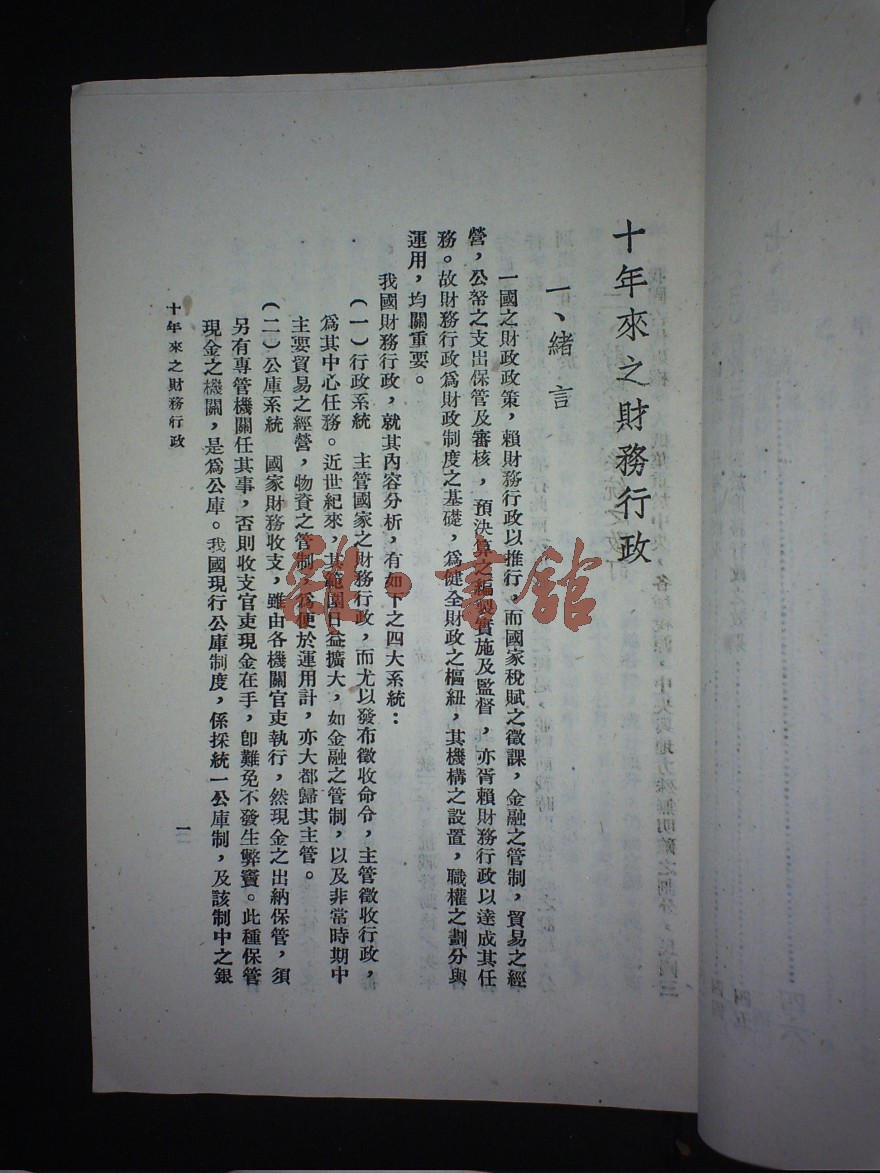 十年來之財務行政
一、緒言
一國之財政政策，賴財務行政以推行，而國家稅賦之徵課，金融之管制，貿易之經
營，公帑之支出保管及審核，預決算之編製實施及監督，亦胥賴財務行政以達成其任
務。故財務行政爲財政制度之基礎，爲健全財政之樞紐，其機構之設置，職權之劃分與
運用，均關重要。
我國財務行政，就其內容分析，有如下之四大系統：
（一）行政系統　主管國家之財務行政，而尤以發布徵收命令，主管徵收行政，
爲其中心任務。近世紀來，其範圍日益擴大，如金融之管制，以及非常時期中
主要貿易之經營，物資之管制，爲便於運用計，亦大都歸其主管。
（二）公庫系統　國家財務收支，雖由各機關官吏執行，然現金之出納保管，須
另有專管機關任其事，否則收支官吏現金在手，卽難免不發生弊竇。此種保管
現金之機關，是爲公庫。我國現行公庫制度，係採統一公庫制，及該制中之銀
十年來之財務行政
一
書館